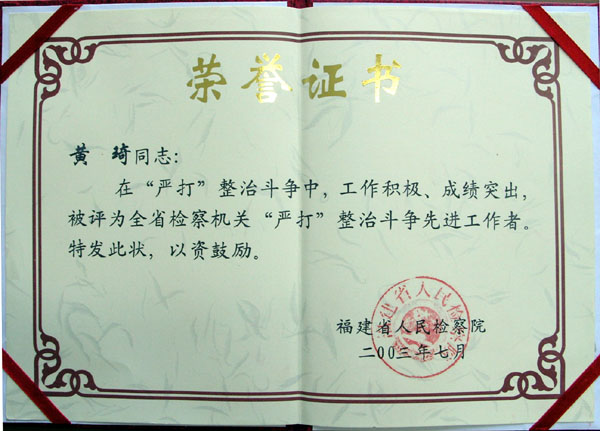 荣誉证书
黄 琦同志：
在“严打”整治斗争中，工作积极、成绩突出，
被评为全省检察机关“严打”整治斗争先进工作者。
特发此状，以资鼓励。
福建省人民检察院
二00三年七月
福建省人民检察院